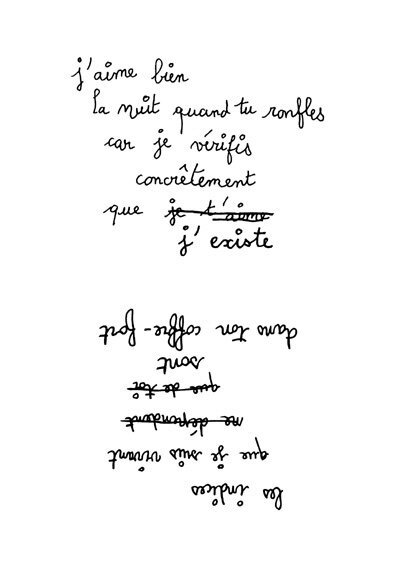 j'aime bien
la nuit quand tu ronfles
car je vérifis
concrêtement
que je t'aime
j'existe
les indices
que je suis vivant
ne dépendent
que de toi
sont
dans ton coffre-fort